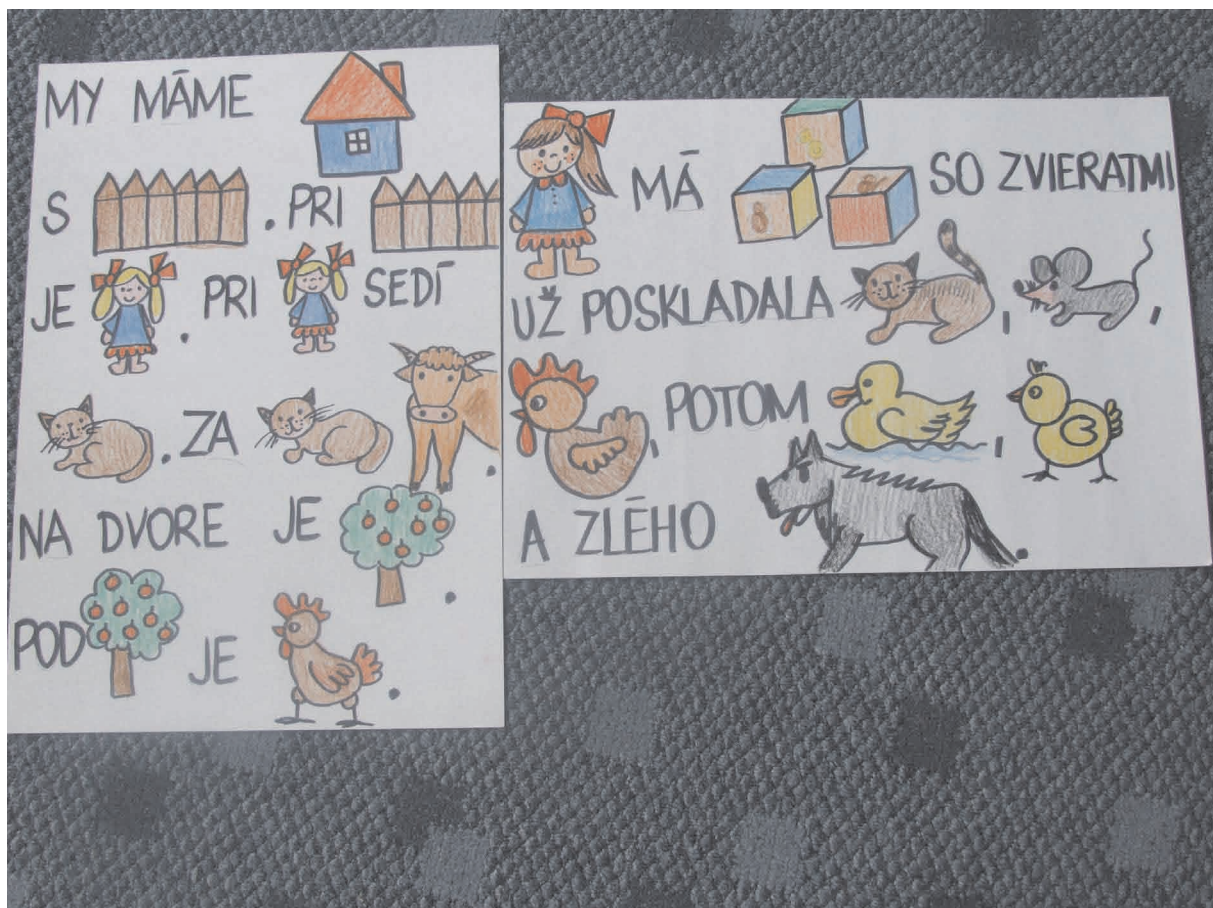 MY MÁME
S . PRI
JE . PRI SEDÍ
. ZA .
NA DVORE JE .
POD JE .
MÁ SO ZVIERATMI
UŽ POSKLADALA , ,
, POTOM ,
A ZLÉHO .